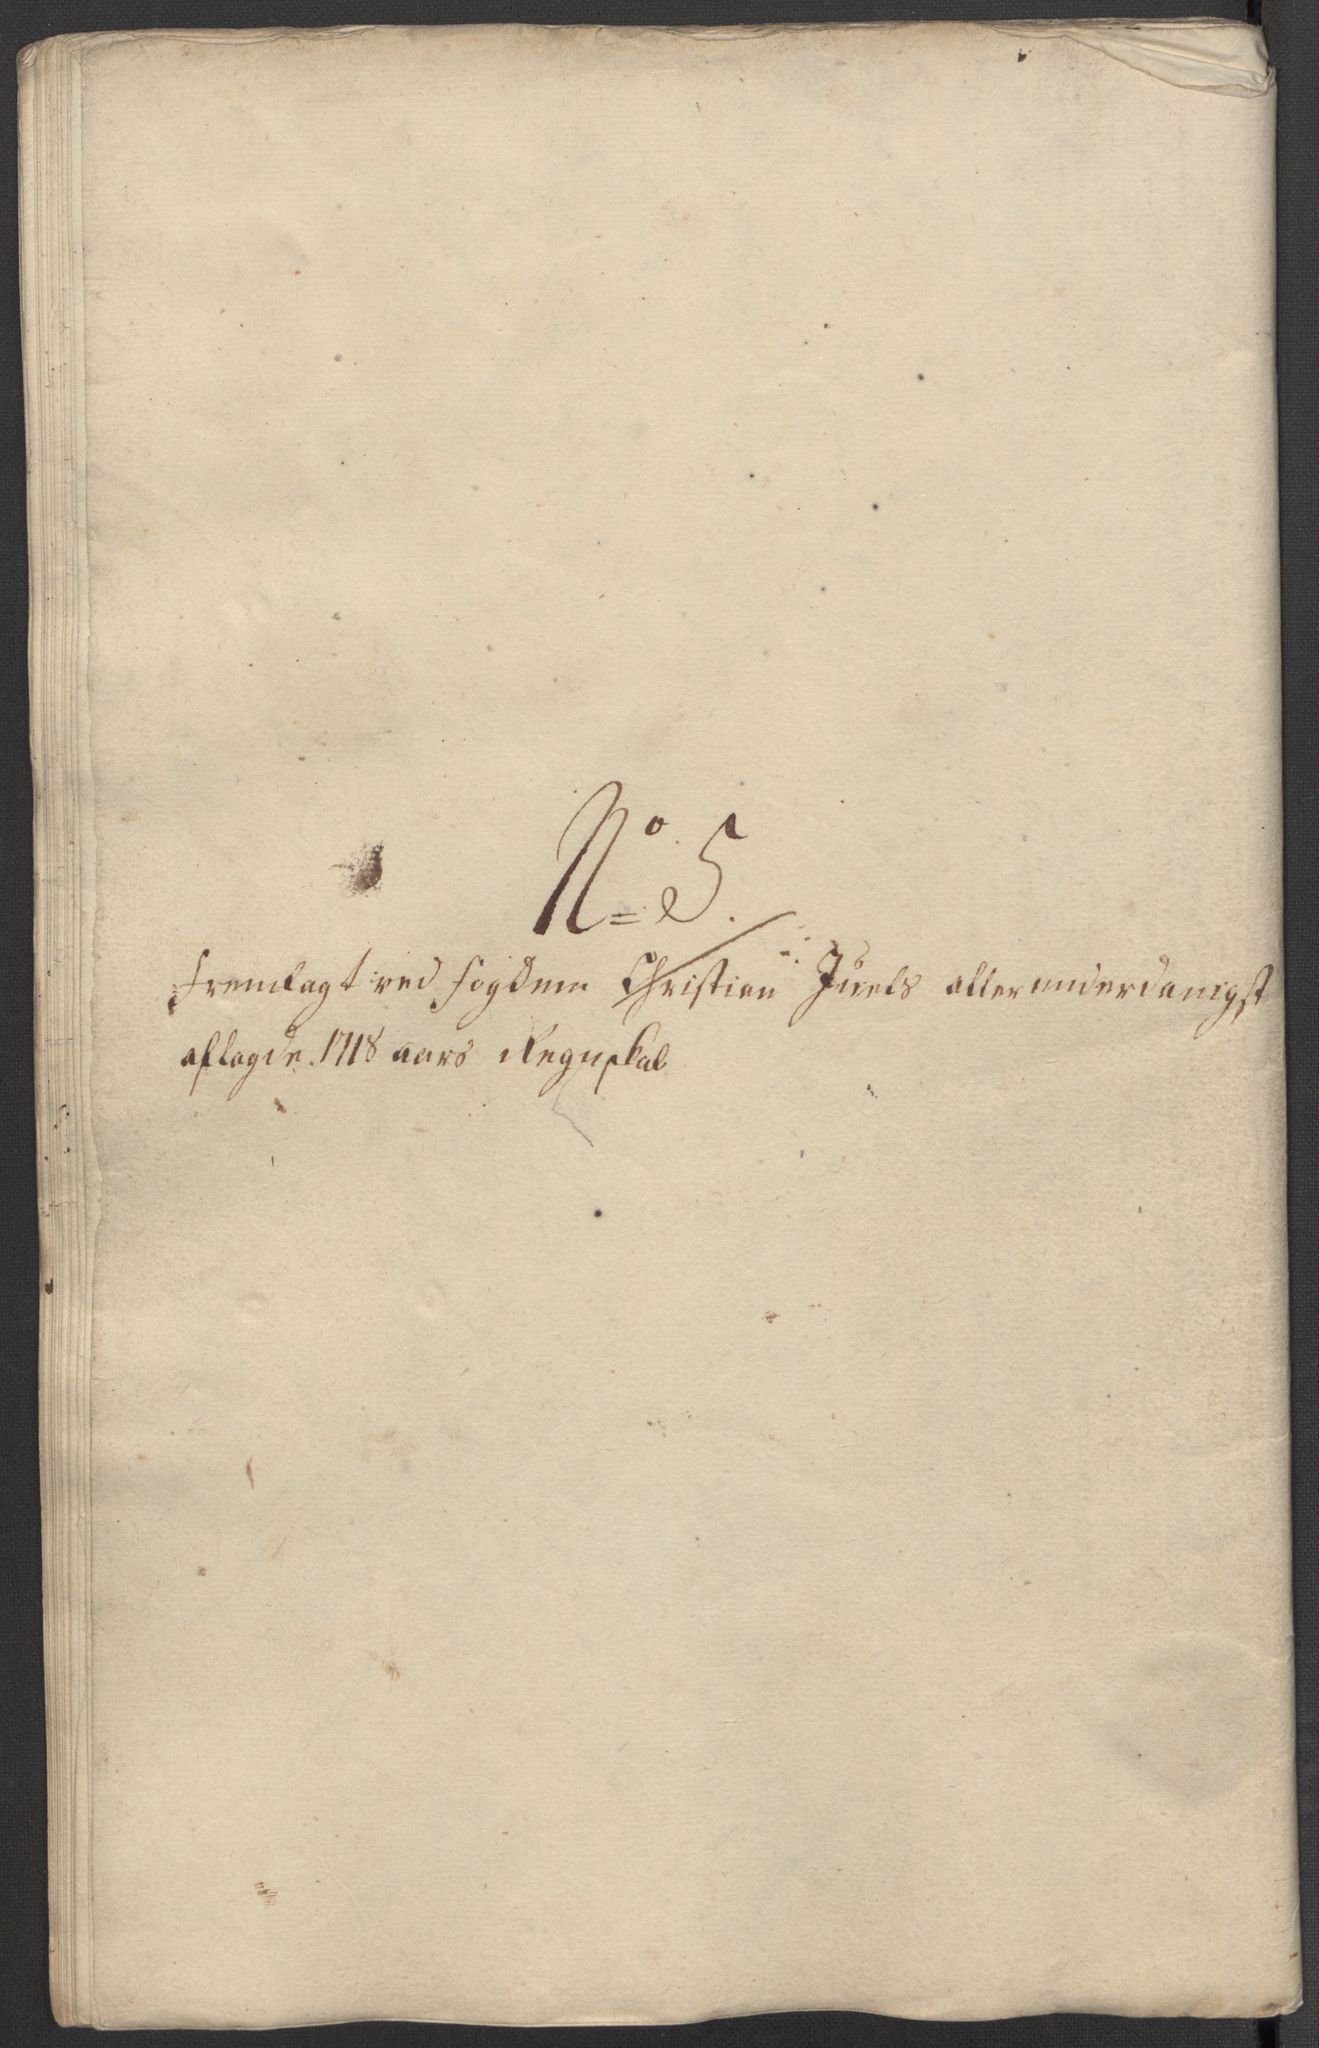 No 5.
Fremlagt ved fogdem Christian Juels allerunderdanigst
aflagde 1718 aars Regnskab